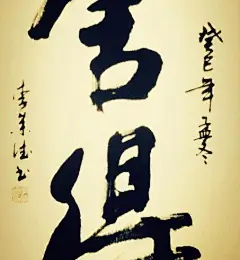 癸巳年孟冬
舍得
李
书